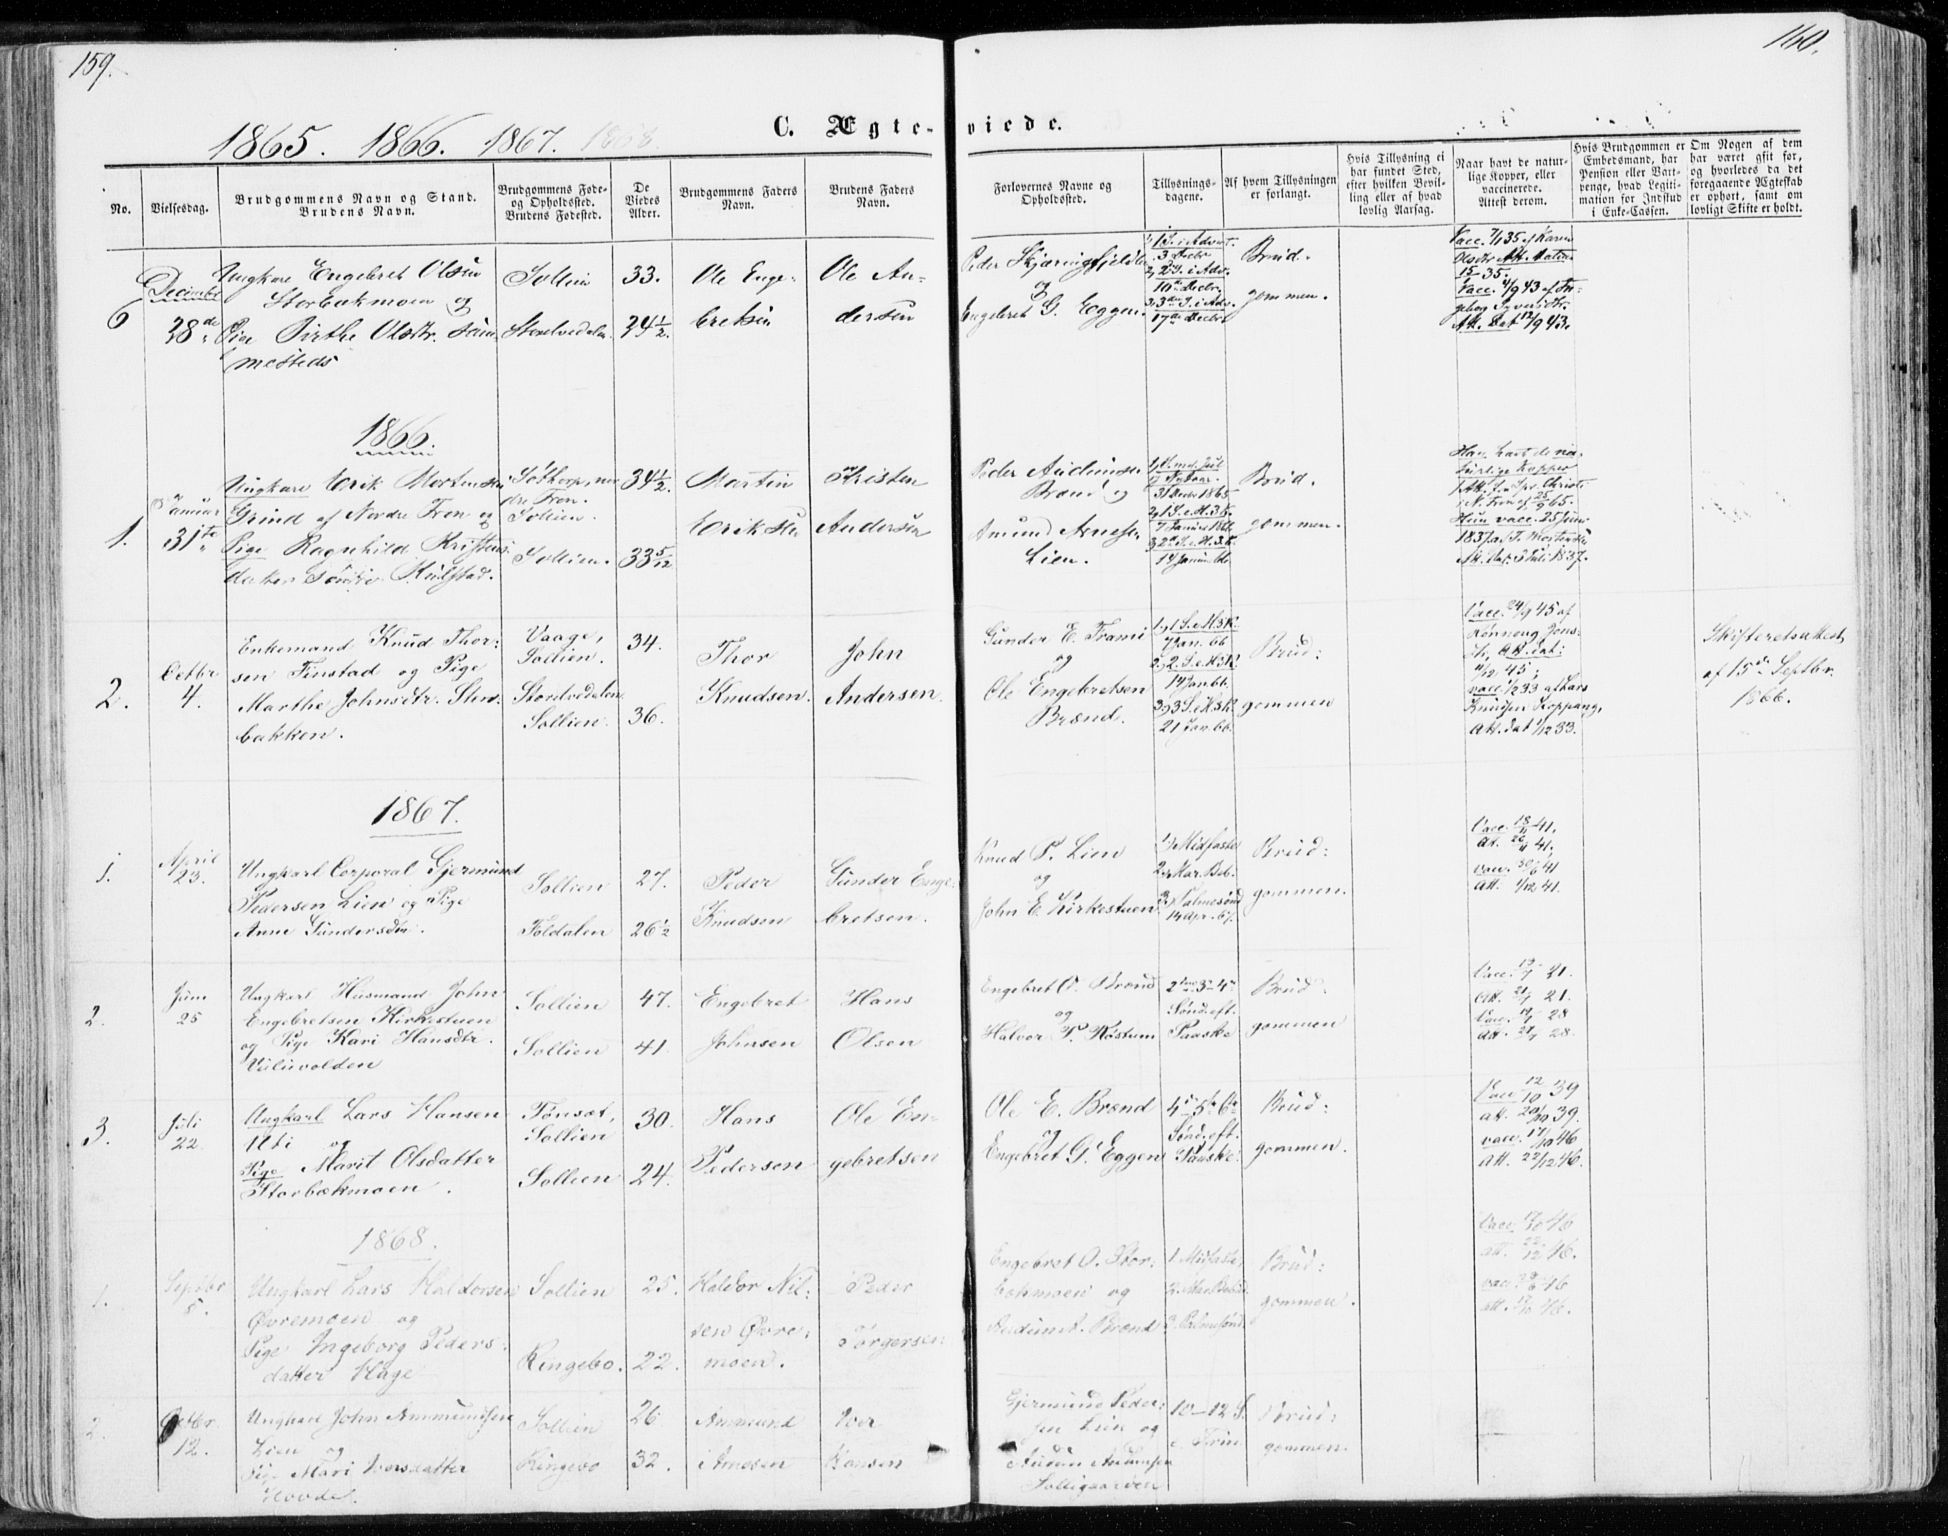 159.
160.
C. Ægte-viede.
1865. 1866. 1867. 1868.
No.
Vielsesdag.
Brudgommens Navn og Stand.
Brudens Navn.
Brudgommens Føde-
og Opholdssted.
Brudens Fødested.
De
Viedes
Alder.
Brudgommens Faders
Navn.
Brudens Faders
Navn.
Forlovernes Navne og
Opholdssted.
Tillysnings-
dagene.
Af hvem Tillysningen
er forlangt.
Hvis Tillysning ei
har fundet Sted,
efter hvilken Bevil-
ling eller af hvad
lovlig Aarsag.
Naar havt de natur-
lige Kopper, eller
vaccinerede.
Attest derom.
Hvis Brudgommen er
Embedsmand, har
Pension eller Vart-
penge, hvad Legiti-
mation for Indskud
i Enke-Cassen.
Om Nogen af dem
har været gift før,
og hvorledes da det
foregaaende Ægteskab
er ophørt, samt om
lovligt Skifte er holdt.
6
Decimbr
28de
Ungkarl Engebret Olsen
Storbækmoen og
Pige Birthe Olsdtr.
mesteds
Sollien
Storelvedalen
33.
34 1/2.
Ole Enge-
bretsen
Ole An-
dersen
Peder Skjæringfjeldle
og
Engebret G. Eggen.
1, 1 S. i Advnt.
3 Decbr
2, 2 S. i Adv.
10de Decbr.
3, 3die S. i Adv.
17de Decbr
Brud-
gommen.
Vacc. 7/1 35 af Karen
15 35.
Vacc. 4/9 43 af
Att. Dat 12/9 43.
1866.
1.
Januar
31te
Ungkarl Erik Mortensen
Grind af Nordre Fron og
Pige Ragnhild Kristens
datter Søndre Kulstad.
Sødhorp, nor
dre Fron.
Sollien.
Sollien.
34 1/2.
33 5/12
Martin
Eriksen
Kristen
Andersen
Peder Audunsen
Brænd og
Amund Arnesen
Lien.
31 Decbr 1865
2, 1 S. e. H. 3 K.
7 Januar 1866
3, 2 S. e. H. 3 K.
14 Januar 66
Brud-
gommen.
Han havt de na-
turlige Kopper
i N. Fron af 25/9 65.
Hun vacc. 25 Juni
1837 af T. Mortensen
Att. dat. 3 Juli 1837.
2.
Octbr
4.
Enkemand Knud Thor-
sen Finstad og Pige
Marthe Johnsdtr. Stor-
bakken.
Vaage,
Sollien.
Storelvedalen
Sollien.
34.
36.
Thor
Knudsen.
John
Andersen.
Gunder E. Trami
og
Ole Engebretsen
Brænd.
1, 1 S. e. H. 3 K.
7 Jan. 66
2, 2. S. e. H. 3 K.
14 Jan. 66.
3, 3 S. e. H. 3 K.
21 Jan. 66.
Brud-
gommen
Vacc. 24/9 45 af
Rønnoug Jons-
dtr. Att. dat:
4/12 45;
vacc. 1/2 33 af Lars
Knudsen Koppang,
Att. dat 1/12 33.
Skifteretsattest
af 15de Septbr.
1866.
1867.
1.
April
23.
Ungkarl Corporal Gjermund
Pedersen Lien og Pige
Anne Gundersdtr.
Sollien
Foldalen
27.
26 1/2
Peder
Knudsen
Gunder Enge-
bretsen.
Knud P. Lien
og
John E. Kirkestuen
1, Midfaste
2, Mar. Beb.
3, Palmesønd
14 Apr. 67.
Brud-
gommen.
Vacc. 18/11 41.
Att. 20/11 41.
vacc. 30/6 41
Att. 1/12 41.
2.
Juni
25
Ungkarl Husmand John
Engebretsen Kirkestuen
og Pige Kari Hansdtr.
Sollien
Sollien
47.
41.
Engebret
Johnsen
Hans
Olsen
Engebret O. Brænd
og
Halvor P. Røstum
2den 3- 4de
Sønd. eft.
Paaske
Brud-
gommen
Vacc. 19/7 21.
Att. 21/7 21.
Vacc. 14/7 28
Att. 21/7 28.
3.
Juli
22.
Ungkarl Lars Hansen
Uti og
Pige Marit Olsdatter
Storbækmoen.
Tønset,
Sollien
Sollien
30.
24.
Hans
Pedersen
Ole En-
gebretsen
Ole E. Brænd
og
Engebret G. Eggen
4de 5te 6te
Sønd. eft.
Paaske.
Brud-
gommen.
Vacc 12/10 39
att. 20/10 39.
vacc. 17/10 46
Att. 22/12 46.
1868.
1.
Septbr
5.
Ungkarl Lars Haldorsen
Øvremoen og
Pige Ingeborg Peders-
datter Hage
Sollien
Ringebo.
25.
22.
Haldor Nil-
sen Øvre-
moen.
Peder
Torgersen
Engebret O. Stor-
bækmoen og
Audun A. Brænd
1. Midfaste,
2. Mar Bebud.
3. Palmesønd
Brud-
gommen.
Vacc. 17/10 46
att. 22/12 46.
vacc 30/6 46
att. 17/10 46.
2.
Octbr.
12.
Ungkarl John Ammundsen
Lien og
Pige Mari Iversdatter
Hovde.
Sollien
Ringebo
26
32.
Ammund
Arnesen
Iver
Hansen
Gjermund Peder-
sen Lien og
Audun Audunsen
Solligaarden
10-12 S.
e. Trin.
Brud-
gommen.